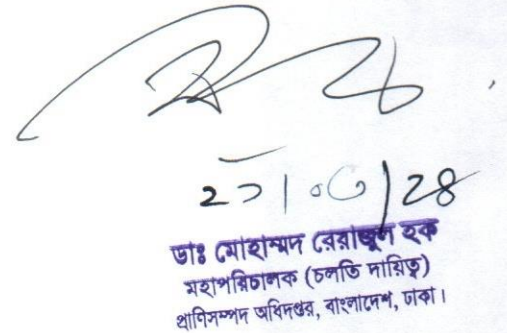 ডাঃ মোহাম্মদ রেয়াজুল হক
মহাপরিচালক (চলতি দায়িত্ব)
প্রাণিসম্পদ অধিদপ্তর, বাংলাদেশ, ঢাকা।